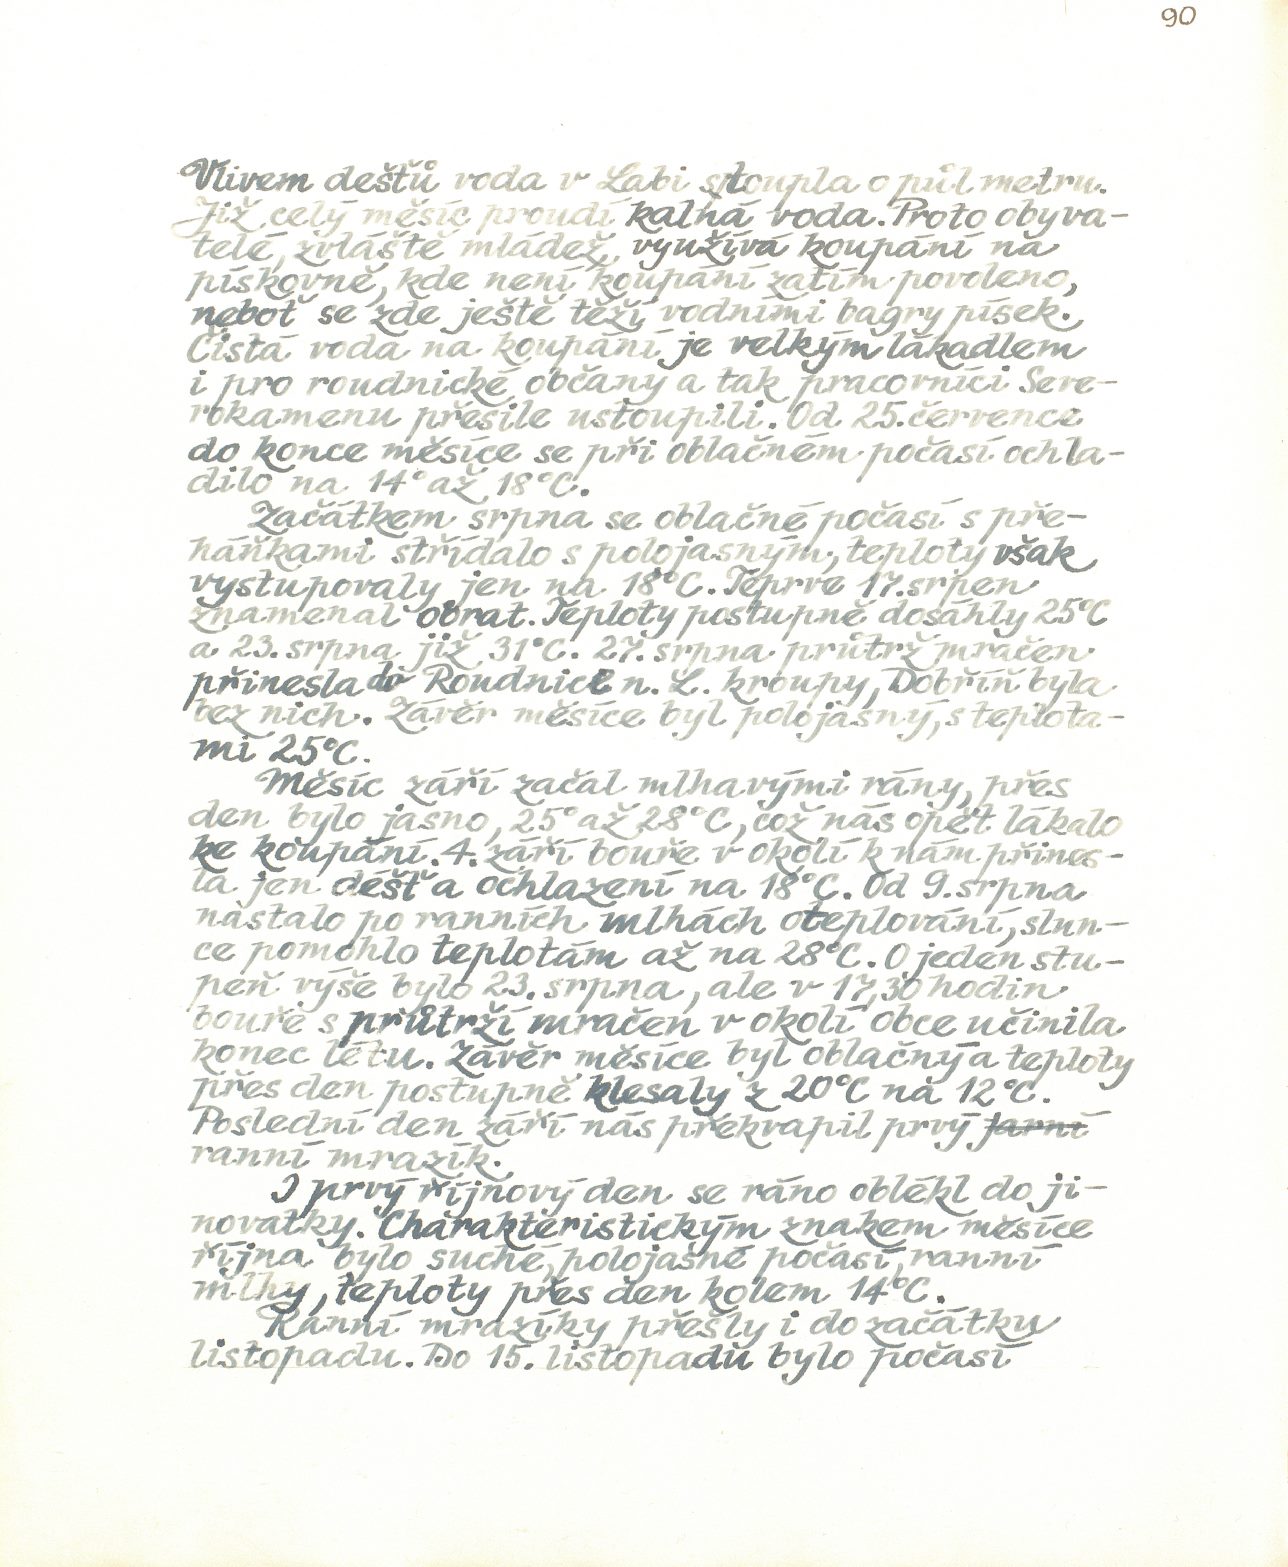 90
Vlivem dešťů voda v Labi stoupla o půl metru.
Již celý měsíc proudí kalná voda. Proto obyva-
telé, zvláště mládež, využívá koupání na
pískovně, kde není koupání zatím povoleno,
neboť se zde ještě těží vodními bagry písek.
Čistá voda na koupání je velkým lákadlem
i pro roudnické občany a tak pracovníci Seve-
rokamenu přesile ustoupili. Od 25. července
do konce měsíce se při oblačném počasí ochla-
dilo na 14° až 18°C.
Začátkem srpna se oblačné počasí s pře-
háňkami střídalo s polojasným, teploty však
vystupovaly jen na 18°C. Teprve 17. srpen
znamenal obrat. Teploty postupně dosáhly 25°C
a 23. srpna již 31°C. 27. srpna průtrž mračen
přinesla do Roudnice n. L. kroupy, Dobříň byla
bez nich. Závěr měsíce byl polojasný, s teplota-
mi 25°C.
Měsíc září začal mlhavými rány, přes
den bylo jasno, 25° až 28°C, což nás opět lákalo
ke koupání. 4. září bouře v okolí k nám přines-
la jen déšť a ochlazení na 18°C. Od 9. srpna
nastalo po ranních mlhách oteplování, slun-
ce pomohlo teplotám až na 28°C. O jeden stu-
peň výše bylo 23. srpna, ale v 17,30 hodin
bouře s průtrží mračen v okolí obce učinila
konec létu. Závěr měsíce byl oblačný a teploty
přes den postupně klesaly z 20°C na 12°C.
Poslední den září nás překvapil prvý jarní
ranní mrazík.
I prvý říjnový den se ráno oblékl do ji-
novatky. Charakteristickým znakem měsíce
října bylo suché, polojasné počasí, ranní
mlhy, teploty přes den kolem 14°C.
Ranní mrazíky přešly i do začátku
listopadu. Do 15. listopadu bylo počasí